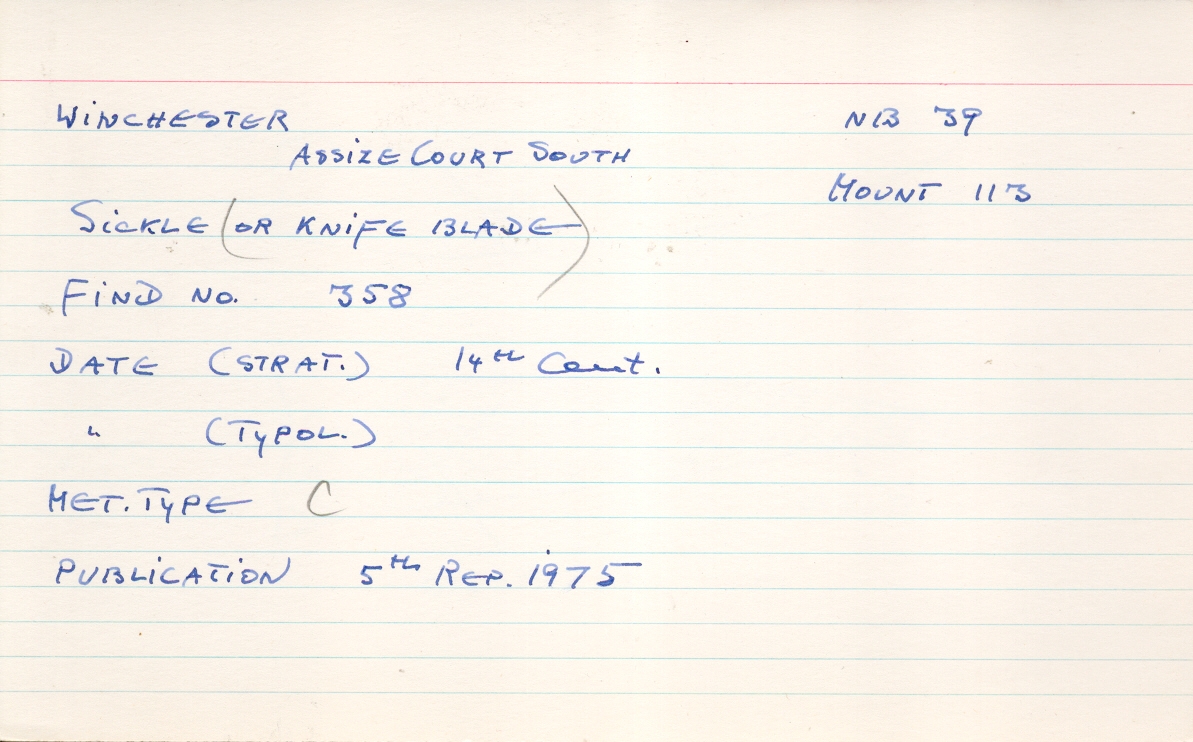 WINCHESTER NB 39
ASSIZE COURT SOUTH
MOUNT 113
SICKLE (OR KNIFE BLADE)
FIND NO. 358
DATE (STRAT.) 14th Cent.
" (TYPOL.)
MET. TYPE C
PUBLICATION 5th REP. 1975